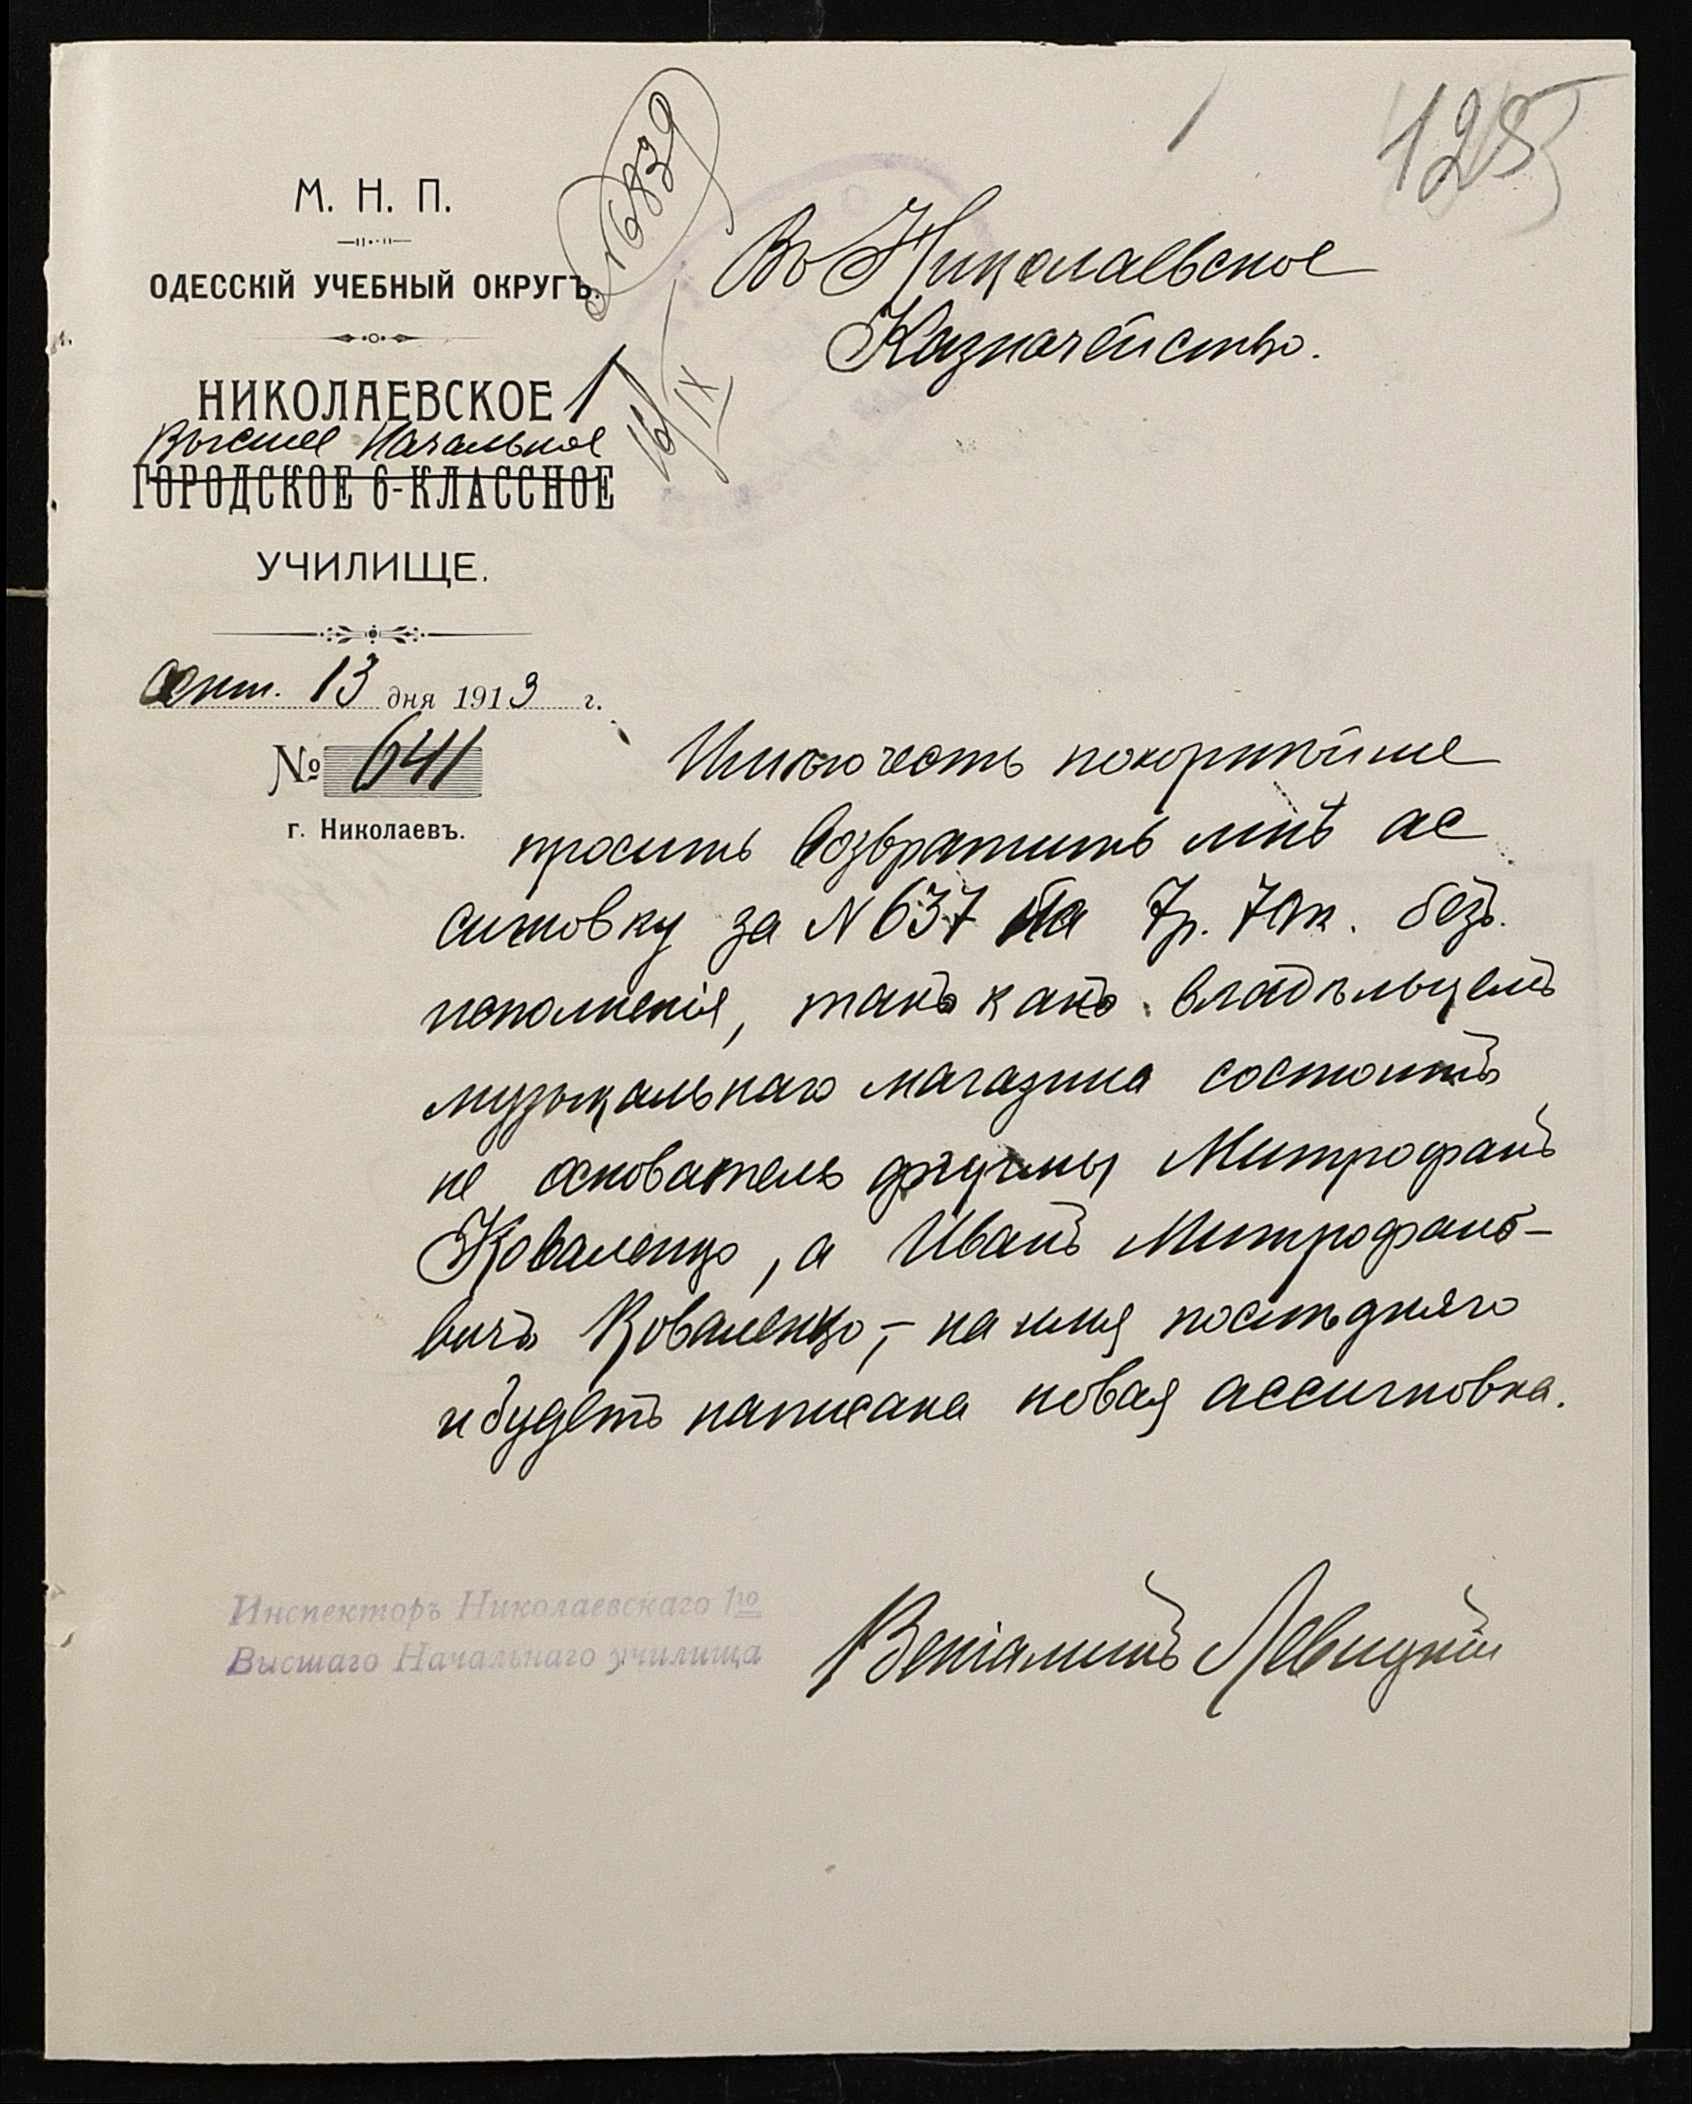 128
№ 6839
16/IX
М. Н. П.
ОДЕССКІЙ УЧЕБНЫЙ ОКРУГЪ.
НИКОЛАЕВСКОЕ 1
Высшее Начальное
ГОРОДСКОЕ 6-КЛАССНОЕ
УЧИЛИЩЕ.
Сент. 13 дня 1913 г.
№ 641
г. Николаевъ.
Въ Николаевское
Казначейство.
Имѣю честь покорнѣйше
просить возвратить мнѣ ас
сигновку за N 637 на 7р. 70к. безъ
исполненія, такъ какъ владѣльцемъ
музыкальнаго магазина состоитъ
не основатель фирмы Митрофанъ
Коваленко, а Иванъ Митрофано-
вичъ Коваленко, - на имя послѣдняго
и будетъ написана новая ассигновка.
Инспекторъ Николаевскаго 1го
Высшаго Начальнаго училища
Веніаминъ Левицкій